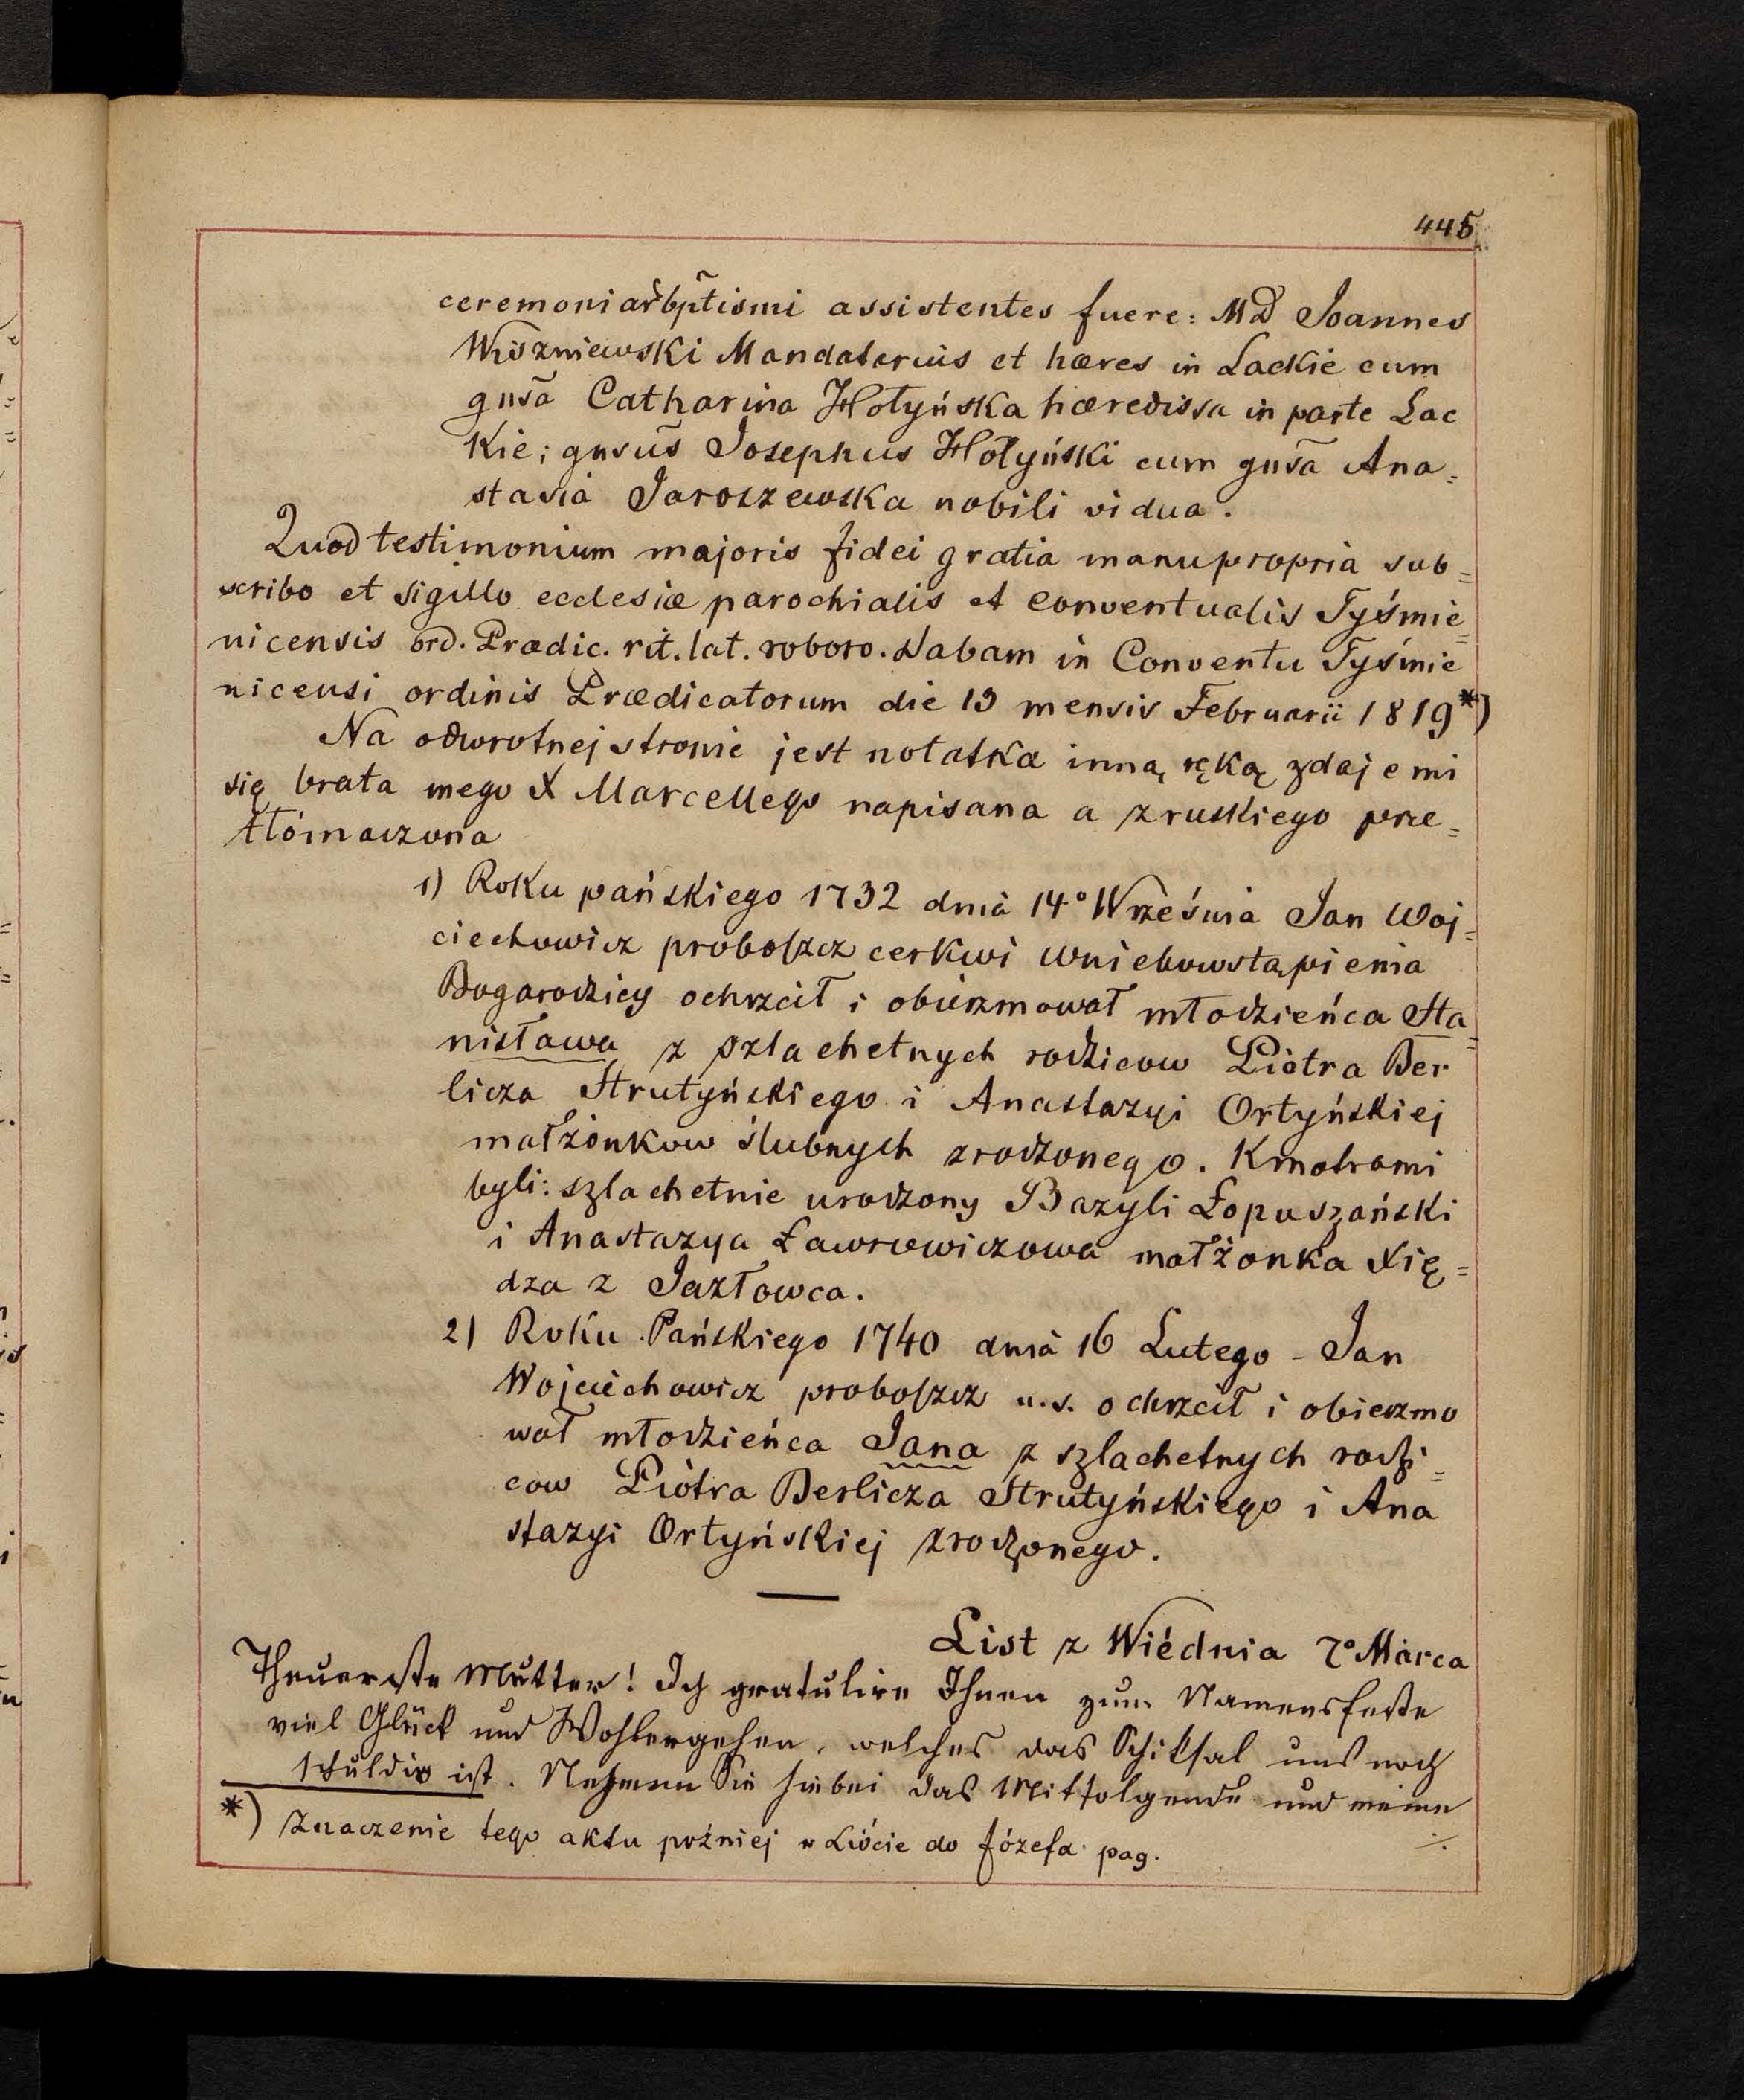 445
ceremoniar̃ bp̃tismi assistentes fuere: MD Joannes
Wiszniewski Mandatarius et hæres in Lackie cum
gnsã Catharina Hołyńska hæredissa in parte Lac
kie; gnsus̃ Josephus Hołyński cum gnsã Ana=
stasia Jaroszewska nobili vidua.
Quod testimonium majoris fidei gratia manu propria sub=
scribo et sigillo ecclesiæ parochialis et conventualis Tyśmie=
nicensis ord. Prædic. rit. lat. roboro. Dabam in Conventu Tyśmie
nicensi ordinis Prædicatorum die 19 mensis Februarii 1819*)
Na odwrotnej stronie jest notatka inną ręką zdaje mi
się brata mego X Marcellego napisana a z ruskiego prze=
tłómaczona
1) Roku pańskiego 1732 dnia 14° Września Jan Woj=
ciechowicz proboszcz cerkwi Wniebowstąpienia
Bogarodzicy ochrzcił i obierzmował młodzieńca Sta=
nisława z szlachetnych rodzicow Piotra Ber
licza Strutyńskiego i Anastazyi Ortyńskiej
małżonkow ślubnych zrodzonego. Kmotrami
byli: szlachetnie urodzony Bazyli Łopuszański
i Anastazya Ławrowiczowa małżonka Xię=
dza z Jazłowca.
2) Roku Pańskiego 1740 dnia 16 Lutego - Jan
Wojciechowicz proboszcz u.s. ochrzcił i obierzmo
wał młodzieńca Jana z szlachetnych rodzi=
cow Piotra Berlicza Strutyńskiego i Ana
stazyi Ortyńskiej zrodzonego.
List z Wiednia 7° Marca
Theuerste Mutter! Ich gratulire Ihnen zum Namensfeste
viel Glück und Wohlergehen, welches das Schiksal uns noch
schuldig ist. Nehmen Sie hiebei das Mitfolgende und meine
*) Znaczenie tego aktu poźniej w Liście do Józefa pag. ·/.